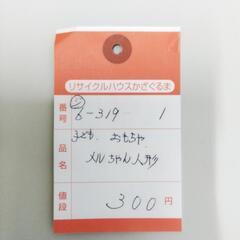 リサイクルハウスかざぐるま
番号 6-319 1
品名 子ども おもちゃ
メルちゃん人形
値段 300円